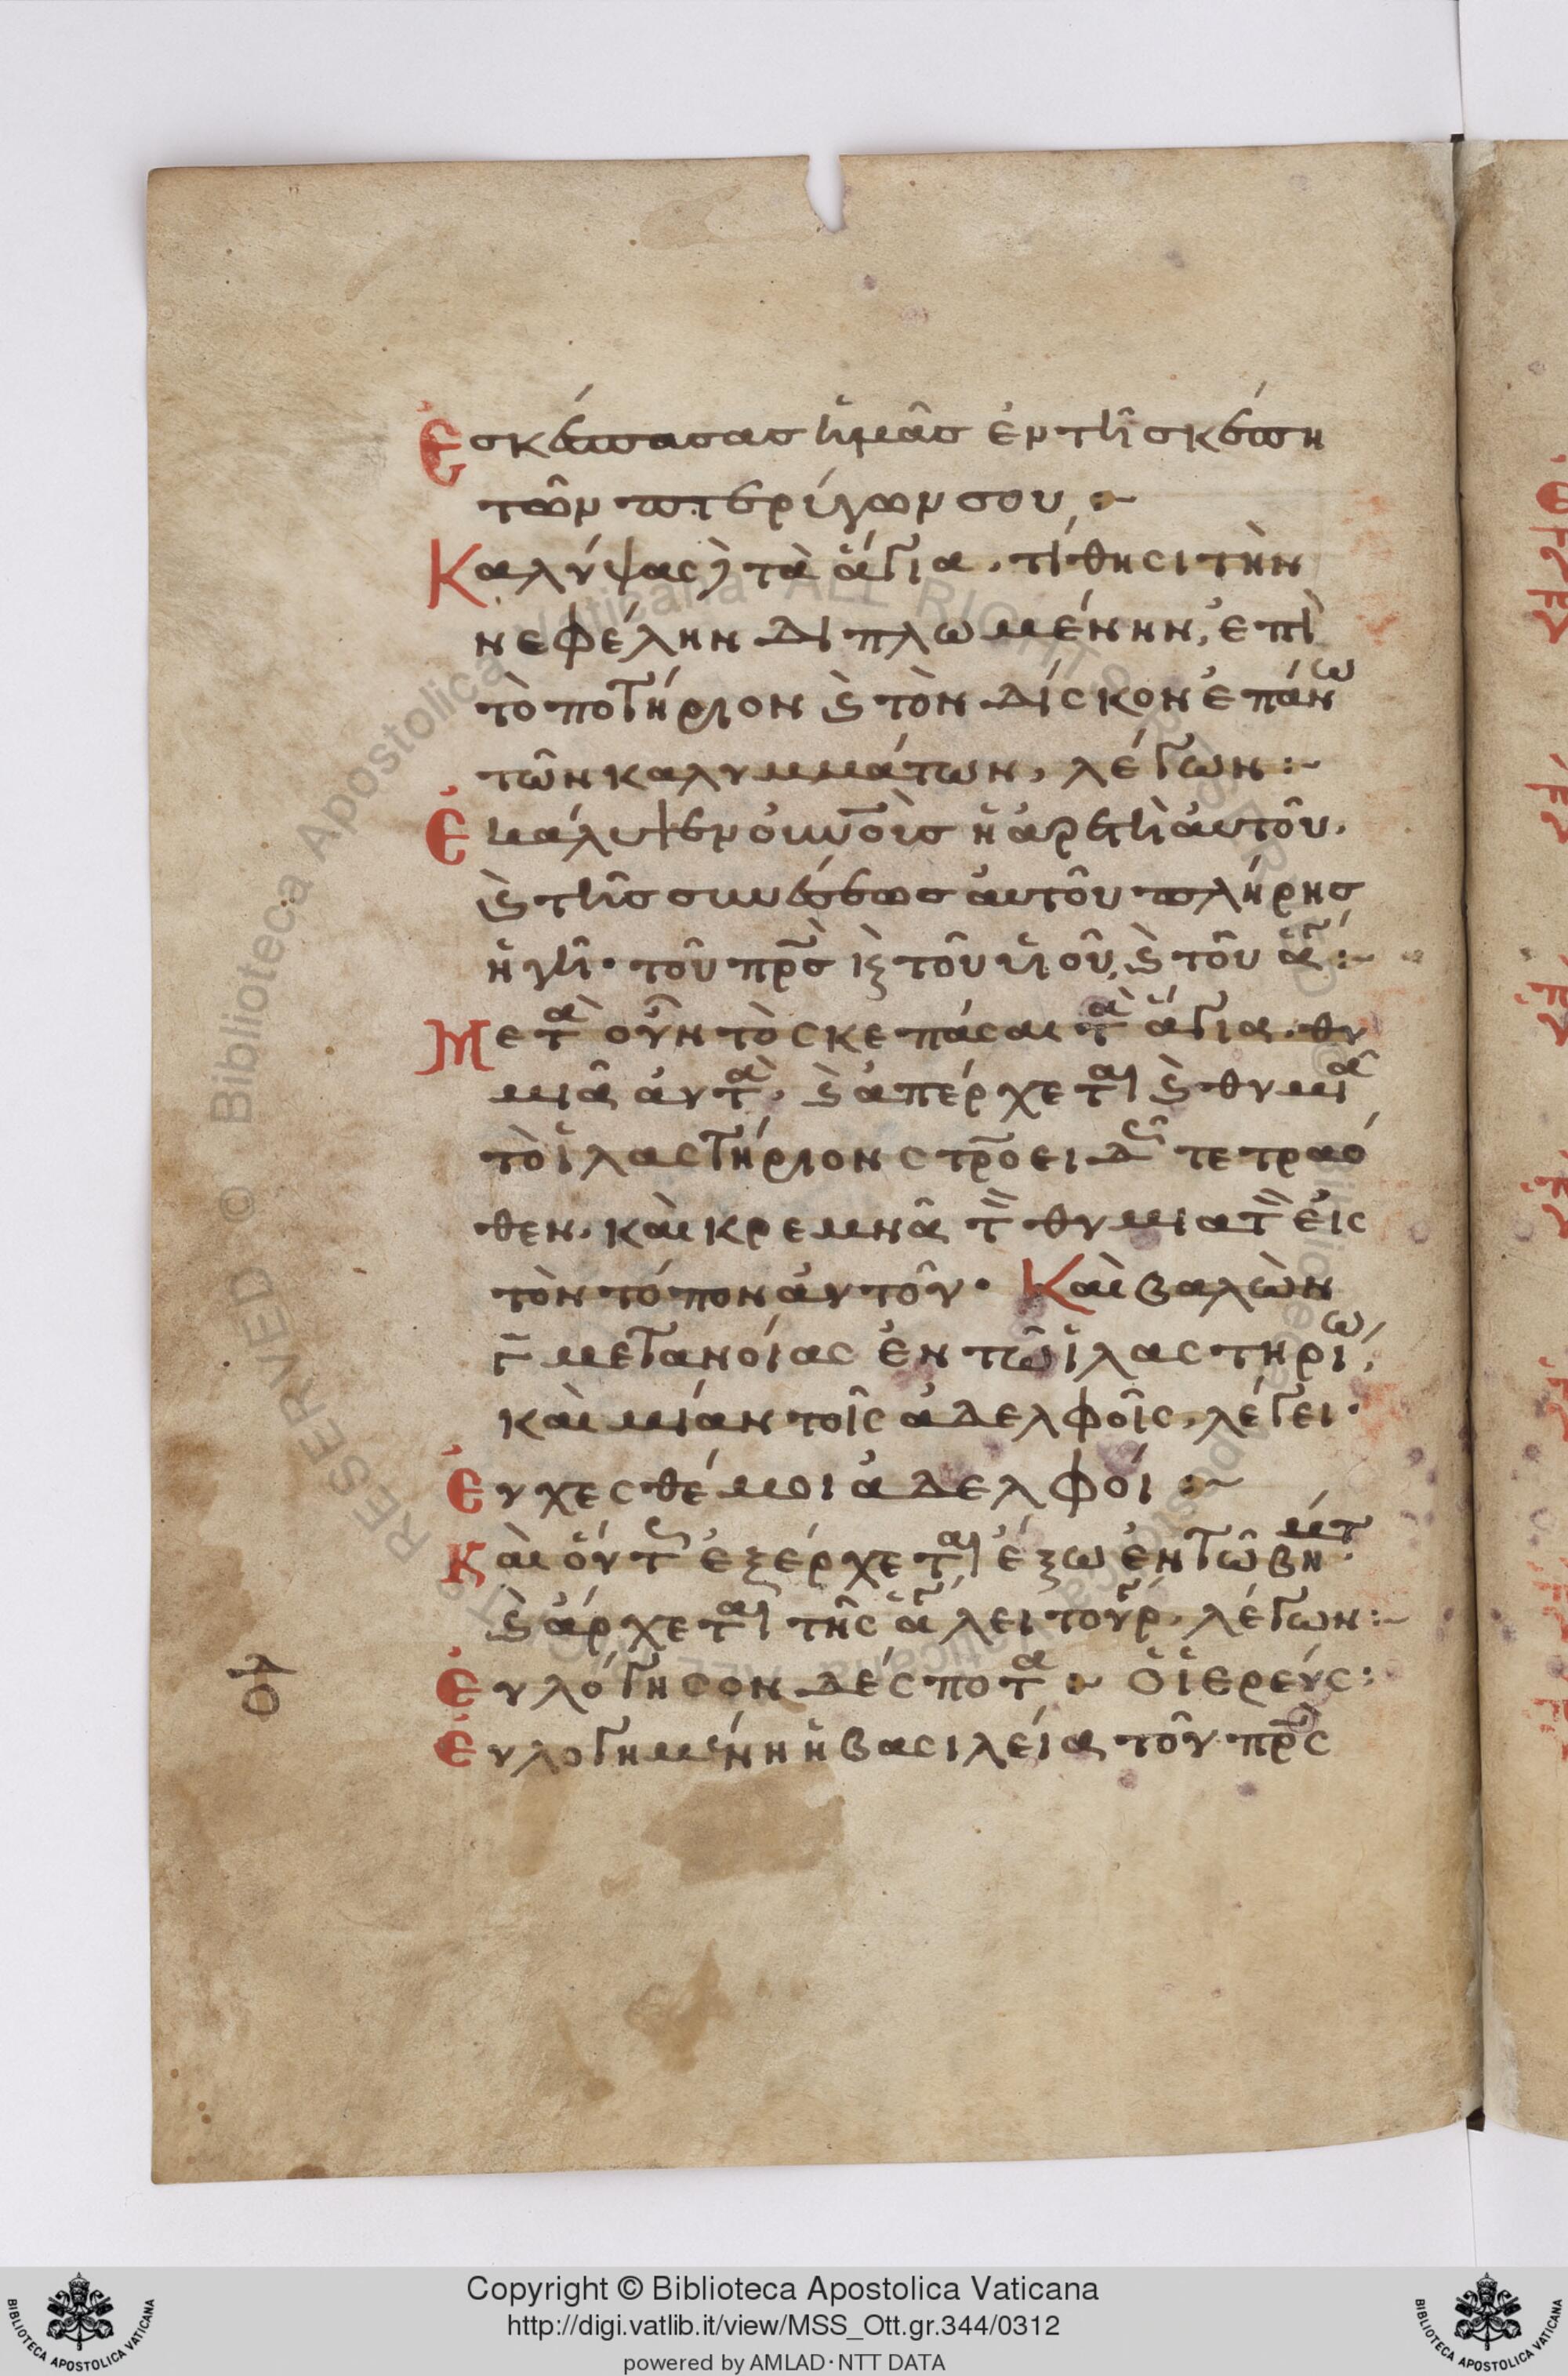 Ἐσκέπασας ἡμᾶς ἐν τῆ σκέπη
τῶν πτερύγων σου :~
Καλύψας ϗ τὰ ἅγια, τίθησι τὴν
νεφέλην διπλωμένην, ἐπὶ
τὸ ποτήριον ϗ τὸν δίσκον ἐπάνω
τῶν καλυμμάτων, λέγων :~
Ἐκάλυψεν οὐνοὺς ἡ ἀρετὴ αὐτοῦ.
ϗ τῆς συνέσεως αὐτοῦ πλήρης
ἡ γῆ· τοῦ πρς ϗ τοῦ υἱοῦ, ϗ τοῦ ἁγ :~
Μετὰ οὖν τὸ σκεπάσαι τὰ ἅγια. θυ
μιᾶ αὐτὰ, ϗ ἀπέρχεται ϗ θυμιᾶ
τὸ ἱλαστήριον στροειδῶς τετραό
θεν. καὶ κρεμνᾶ τὸν θυμιατὸν εἰς
τὸν τόπον αὐτοῦ· Καὶ βαλὼν
γ μετανοίας ἐν τῶ ἱλαστηρίω,
καὶ μίαν τοῖς ἀδελφοῖς, λέγει·
Εὐχεσθέ μοι ἀδελφοί :~
Καὶ οὕτως ἐξέρχεται ἔξω ἐν τῶ βήματ·
ϗ ἄρχεται τῆς ἁγ λειτουργ, λέγων :~
Εὐλόγησον δέσποτα :~ Ὁ ἱερεύς :
Εὐλογημένη ἡ βασιλεία τοῦ πρς
Copyright © Biblioteca Apostolica Vaticana
http://digi.vatlib.it/view/MSS_Ott.gr.344/0312
powered by AMLAD·NTT DATA